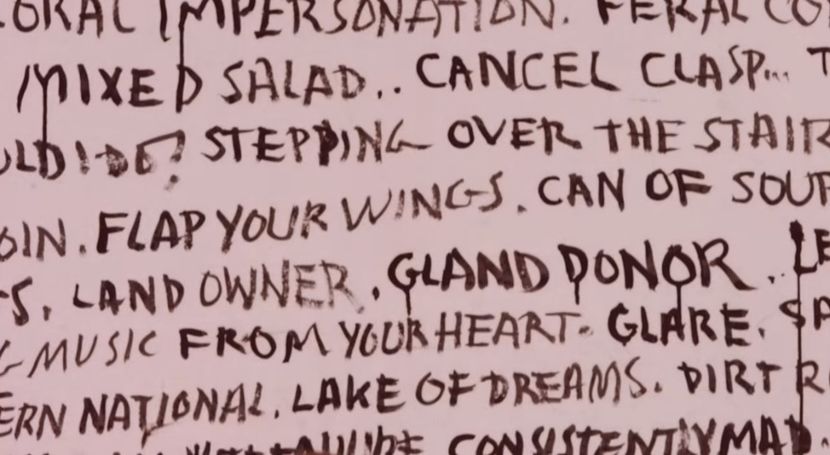 IMPERSONATION. FERAL
MIXED SALAD.. CANCEL CLASP...
STEPPING OVER THE STAIR
OIN. FLAP YOUR WINGS. CAN OF SOU
S. LAND OWNER. GLAND DONOR.. LE
MUSIC FROM YOUR HEART. GLARE. SA
ERN NATIONAL. LAKE OF DREAMS. DIRT R
CONSISTENTLY MAD.